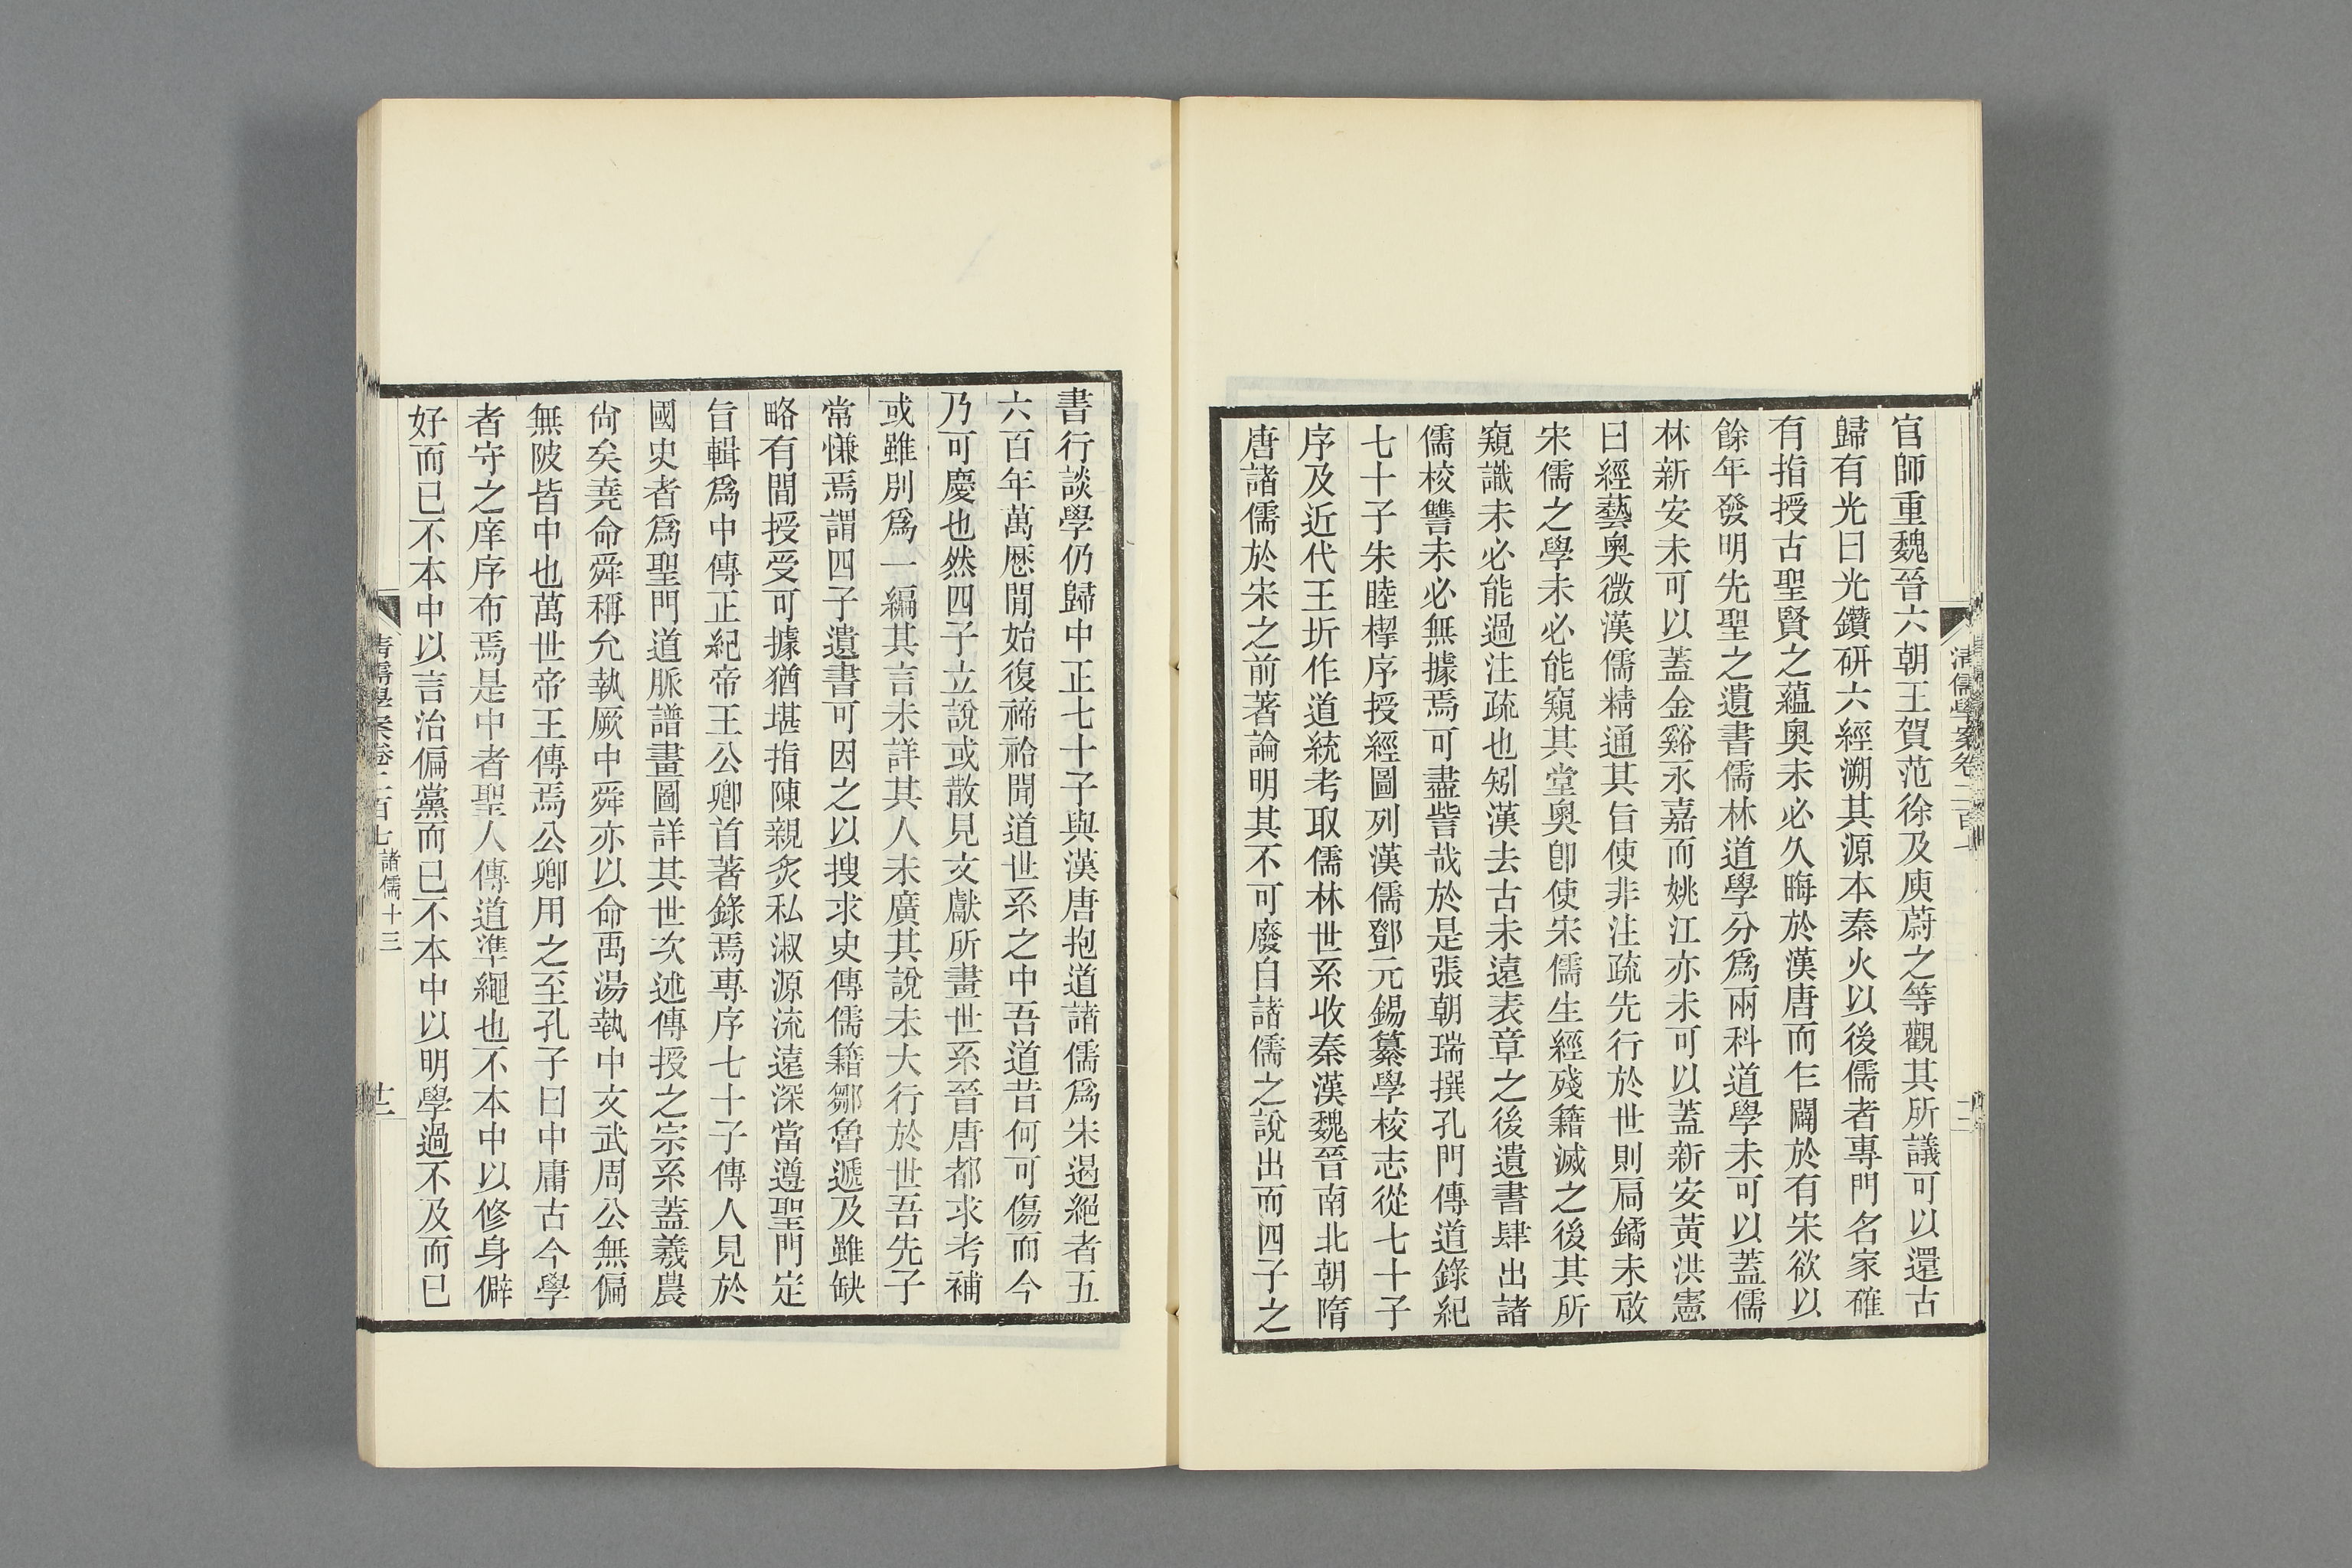 清儒學案卷二百七
官師重魏晉六朝王賀范徐及庾蔚之等觀其所議可以還古
歸有光曰光鑽研六經溯其源本秦火以後儒者專門名家確
有指授古聖賢之蘊奧未必久晦於漢唐而乍闢於有宋欲以
餘年發明先聖之遺書儒林道學分爲兩科道學未可以蓋儒
林新安未可以蓋金谿永嘉而姚江亦未可以蓋新安黃洪憲
曰經藝奧微漢儒精通其旨使非注疏先行於世則扃鐍未啟
宋儒之學未必能窺其堂奧卽使宋儒生經殘籍滅之後其所
窺識未必能過注疏也矧漢去古未遠表章之後遺書肆出諸
儒校讐未必無據焉可盡訾哉於是張朝瑞撰孔門傳道錄紀
七十子朱睦㮮序授經圖列漢儒鄧元錫纂學校志從七十子
序及近代王圻作道統考取儒林世系收秦漢魏晉南北朝隋
唐諸儒於宋之前著論明其不可廢自諸儒之說出而四子之
書行談學仍歸中正七十子與漢唐抱道諸儒爲宋遏絕者五
六百年萬厯閒始復禘祫聞道世系之中吾道昔何可傷而今
乃可慶也然四子立說或散見文獻所畫世系晉唐都求考補
或雖別爲一編其言未詳其人未廣其說未大行於世吾先子
常慊焉謂四子遺書可因之以搜求史傳儒籍鄒魯遞及雖缺
略有間授受可據猶堪指陳親炙私淑源流遠深當遵聖門定
旨輯爲中傳正紀帝王公卿首著錄焉專序七十子傳人見於
國史者爲聖門道脈譜畫圖詳其世次述傳授之宗系蓋羲農
尙矣堯命舜稱允執厥中舜亦以命禹湯執中文武周公無偏
無陂皆中也萬世帝王傳焉公卿用之至孔子曰中庸古今學
者守之庠序布焉是中者聖人傳道準繩也不本中以修身僻
好而已不本中以言治偏黨而已不本中以明學過不及而已
清儒學案卷二百七 諸儒十三 十二